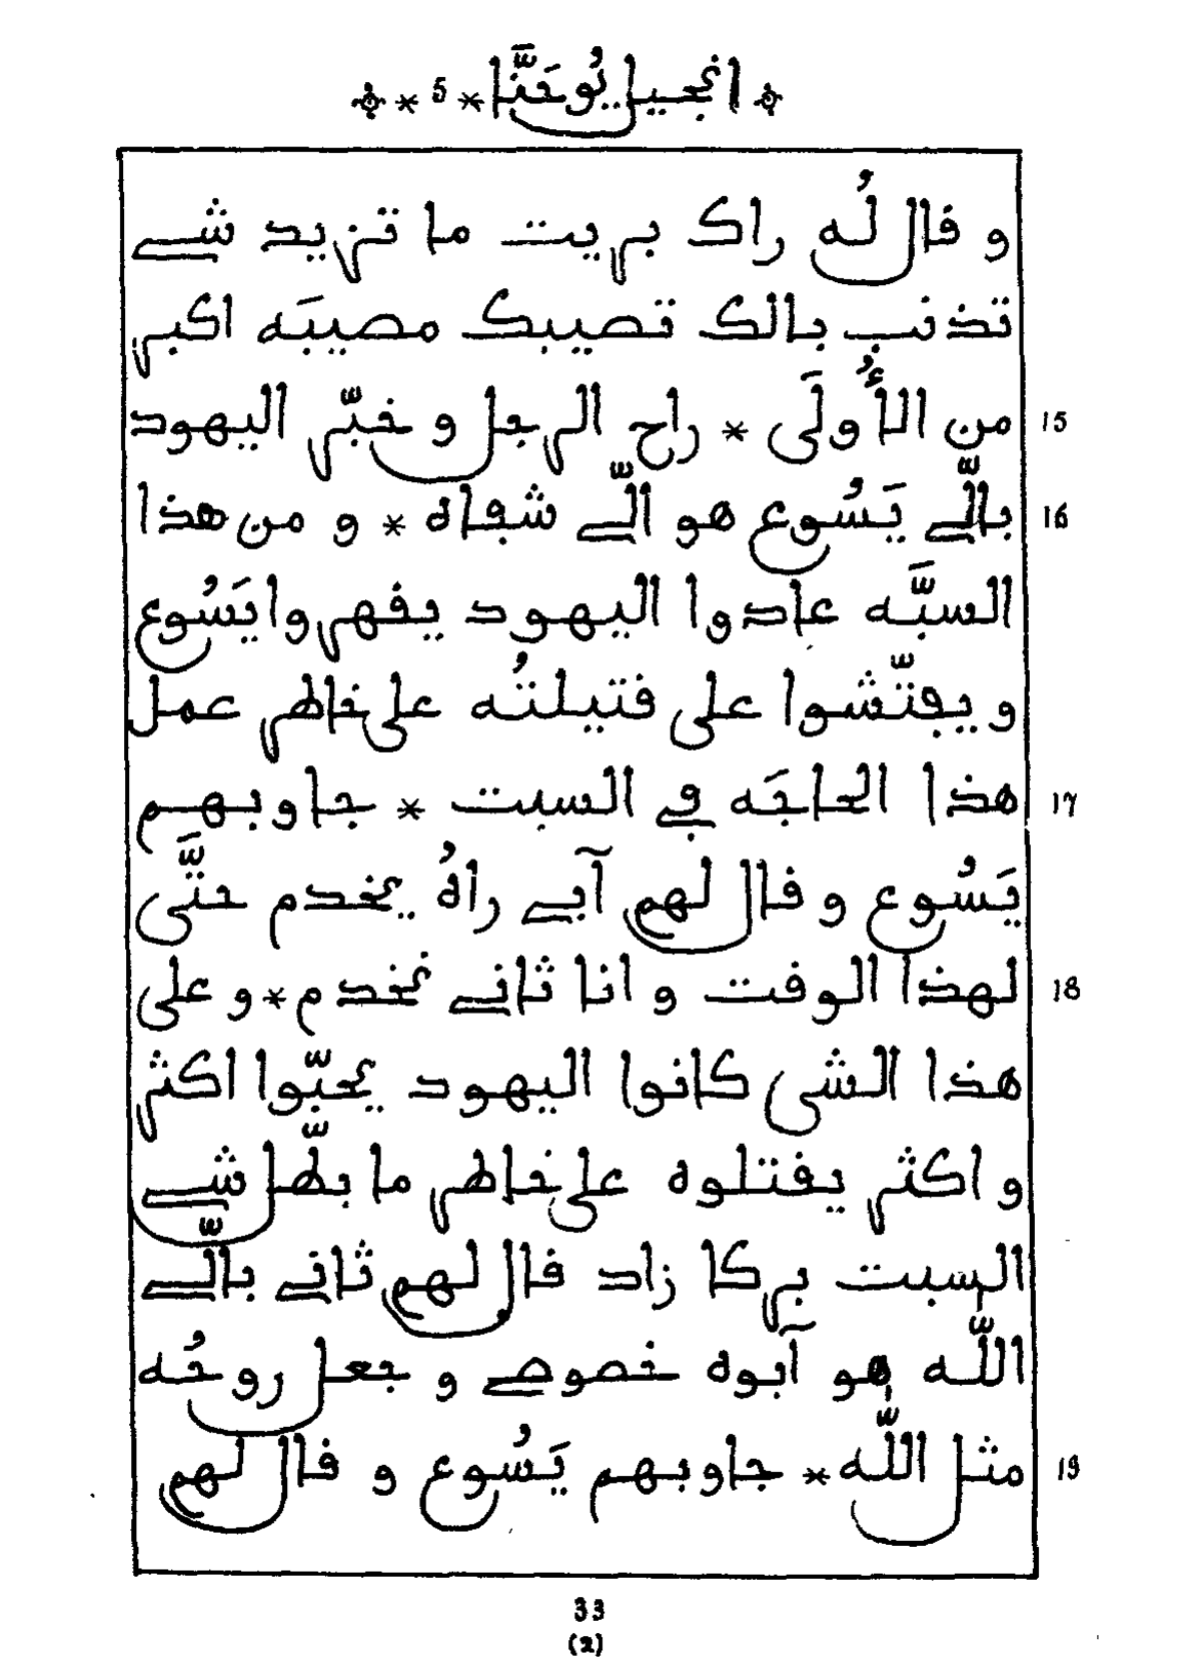 انجيل يُوحَنَّا * 5 *
و قال لُه راك بريت ما تزيد شي
تذنب بالك تصيبك مصيبَه اكبر
من الأُولَى * راح الرجل و خبّر اليهود 15
بالّي يَسُوع هو الّي شفاه * و من هذا 16
السبَّه عادوا اليهود يقهروا يَسُوع
و يفتّشوا على قتيلتُه على خاطر عمل
هذا الحاجَه في السبت * جاوبهم 17
يَسُوع و قال لهم آبي راهُ يخدم حتَّى
لهذا الوقت و انا ثاني نخدم * و على 18
هذا الشي كانوا اليهود يحبّوا اكثر
و اكثر يقتلوه على خاطر ما بطّل شي
السبت بركا زاد قال لهم ثاني بالّي
اللّه هو آبوه خصوصي و جعل روحُه
مثل اللّه * جاوبهم يَسُوع و قال لهم 19
33
(2)